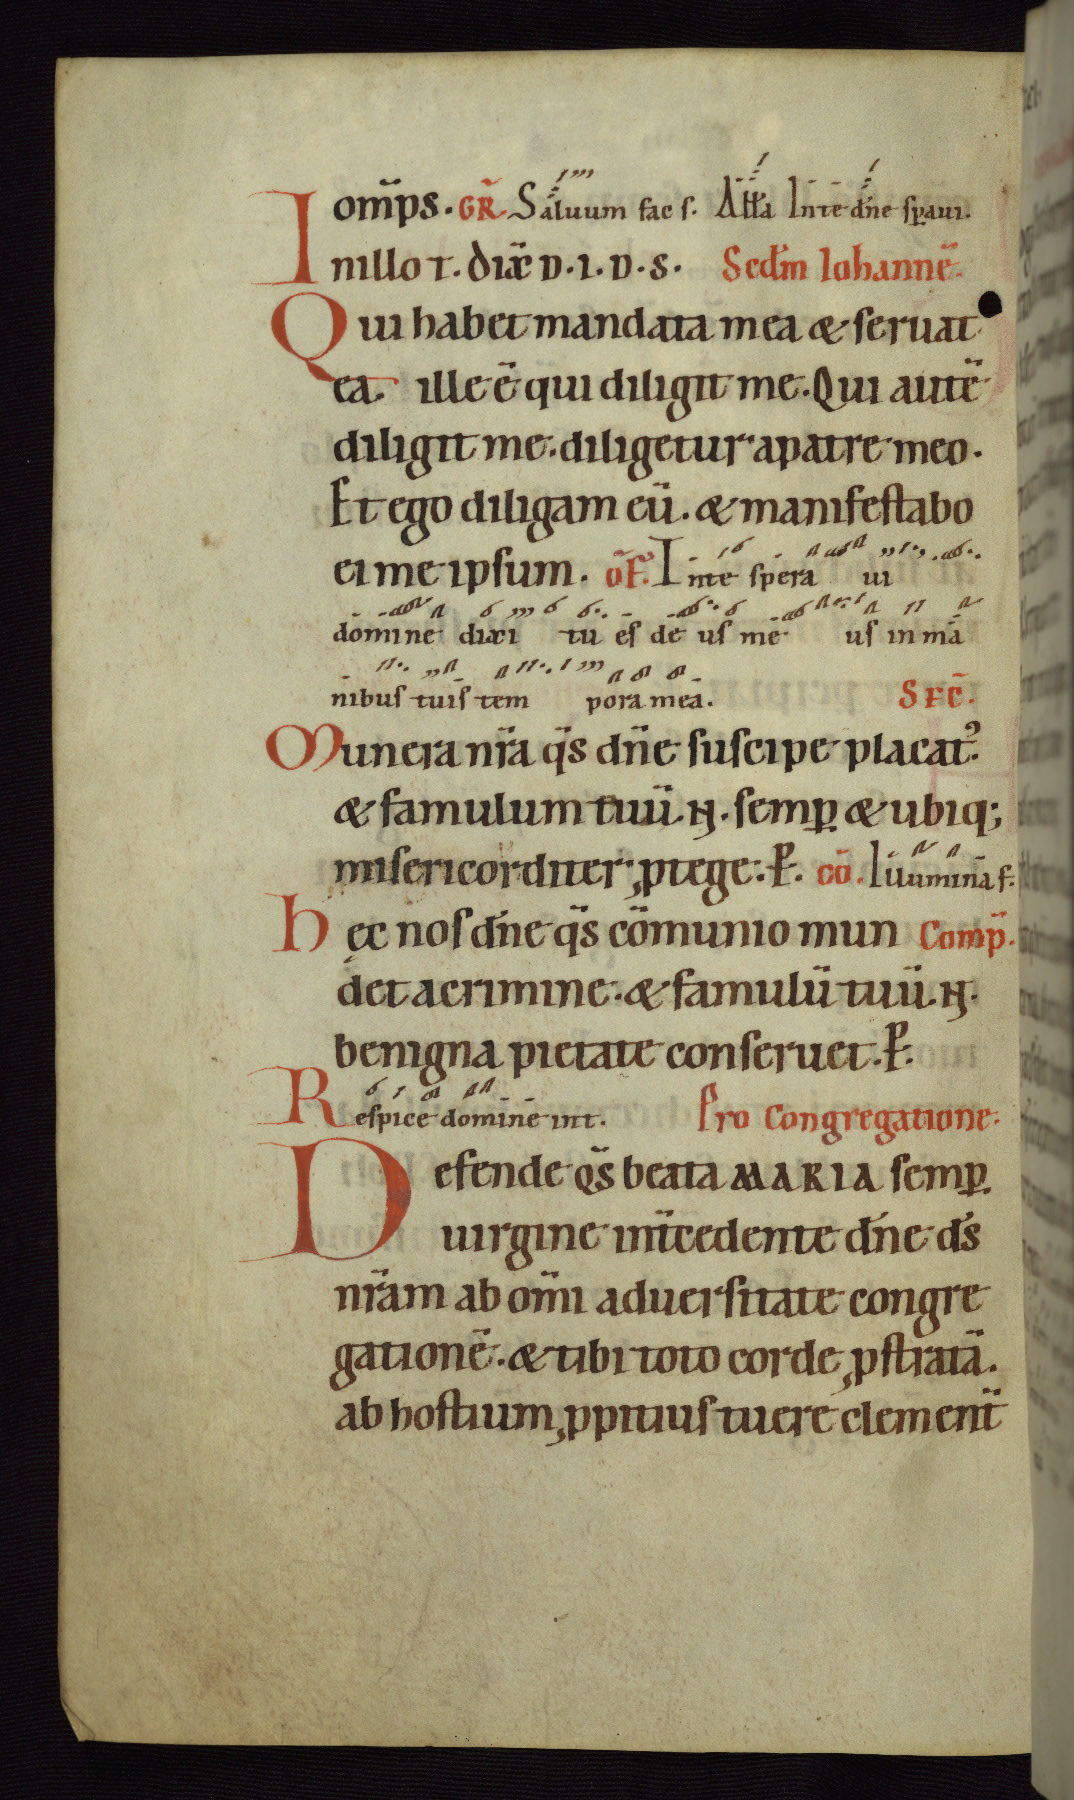 om̄ps. GR̄. Saluum fac s. All'a In te dn̄e sp̄aui.
In illo t. dix̄ D. I. D. S. Scdm̄ Iohannē.
Qui habet mandata mea & seruat
ea. ille ē qui diligit me. Qui autē
diligit me. diligetur a patre meo.
Et ego diligam eū. & manifestabo
ei me ipsum. OF̄. In te spera ui
domine dixi tu es de us me us in ma
nibus tuis tem pora mea. SEC̄.
Munera nr̄a q̄s dn̄e suscipe placatꝰ.
& famulum tuū .N. semꝑ & ubiq;
misericorditer ꝓtege. P. CŌ. Iluumina f.
hęc nos dn̄e q̄s cōmunio mun Comp̄.
det a crimine. & famulū tuū .N.
benigna pietate conseruet. P.
Respice domine in t. Pro Congregatione.
Defende q̄s beata MARIA semꝑ
uirgine int̄cedente dn̄e ds̄
nr̄am ab om̄i aduersitate congre
gationē. & tibi toto corde ꝓstratā.
ab hostium ꝓpitius tuere clement̄